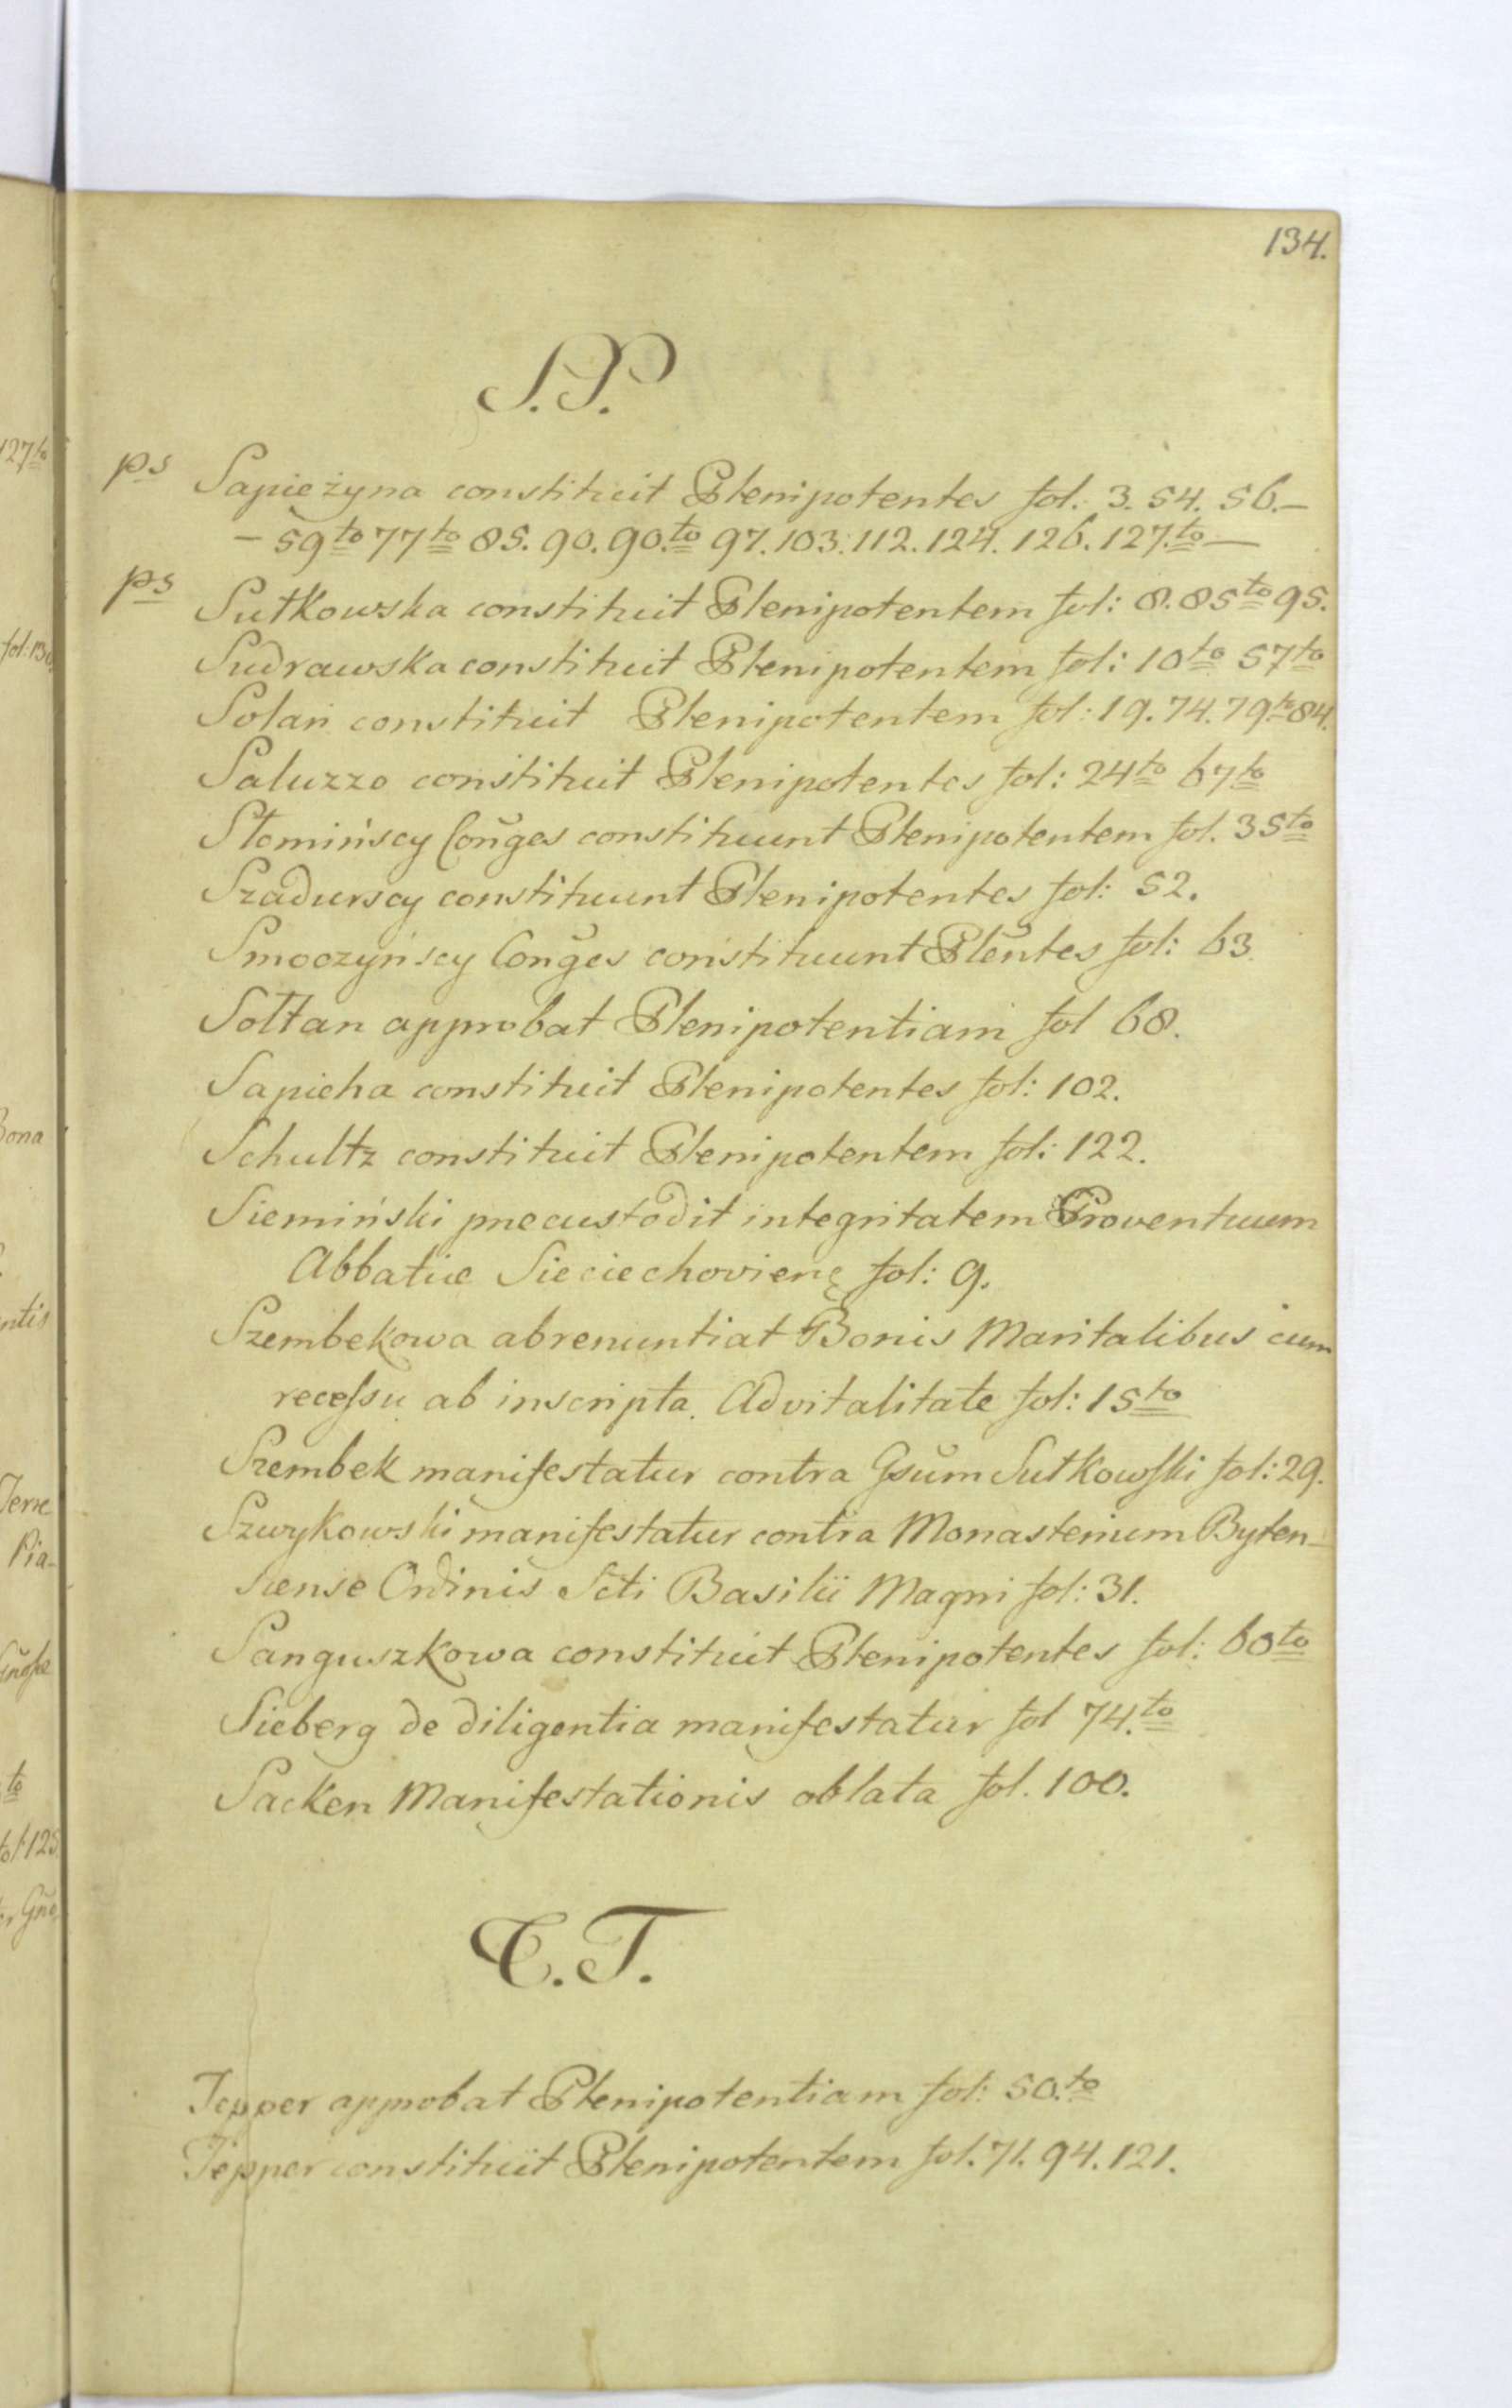 134.
S. S.
ps Sapieżyna constituit Plenipotentes fol. 3. 54. 56.—
— 59to 77to 85. 90. 90.to 97. 103. 112. 124. 126. 127.to —
ps Sułkowska constituit Plenipotentem fol: 8. 85to 95.
Sudrawska constituit Plenipotentem fol: 10to 57to
Solari constituit Plenipotentem fol: 19. 74. 79to 84.
Saluzzo constituit Plenipotentes fol: 24to 67to
Słomińscy Conges constituunt Plenipotentem fol. 35to
Szadurscy constituunt Plenipotentes fol: 52.
Smoczyńscy Conges constituunt Plentes fol: 63.
Sołtan approbat Plenipotentiam fol 68.
Sapieha constituit Plenipotentes fol: 102.
Schultz constituit Plenipotentem fol: 122.
Siemiński praecustodit integritatem Proventuum
Abbatiae Sieciechovienę fol: 9.
Szembekowa abrenuntiat Bonis Maritalibus cum
recessu ab inscripta Advitalitate fol: 15to
Szembek manifestatur contra Gsum Sułkowski fol: 29.
Szwykowski manifestatur contra Monasterium Byten-
siense Ordinis Scti Basilii Magni fol: 31.
Sanguszkowa constituit Plenipotentes fol: 60to
Sieberg de diligentia manifestatur fol 74.to
Sacken Manifestationis oblata fol. 100.
T. T.
Tepper approbat Plenipotentiam fol: 50.to
Tepper constituit Plenipotentem fol. 71. 94. 121.
127to
fol: 130
Bona
entis
Terrae
Pia-
to
fol 125
Gne